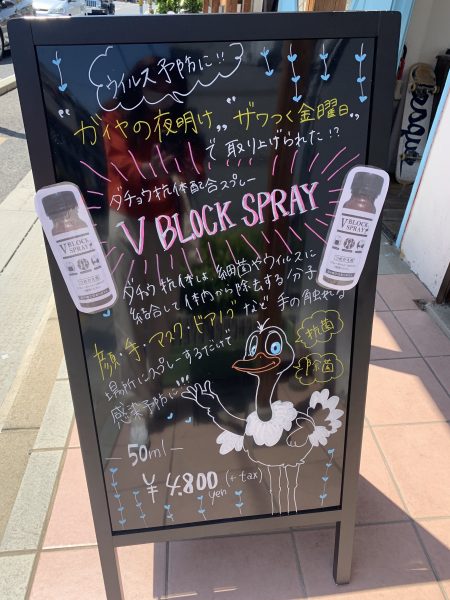 ウイルス予防に!!
"ガイヤの夜明け" "ザワつく金曜日"
で取り上げられた!?
ダチョウ抗体配合スプレー
V BLOCK SPRAY
V BLOCK SPRAY
V BLOCK SPRAY
ダチョウ抗体は、細菌やウイルスに
結合して体内から除去する分子
顔・手・マスク・ドアノブなど手の触れる
場所にスプレーするだけで
感染予防に!!!
抗菌
除菌
50ml
¥4,800 (+tax)
yen